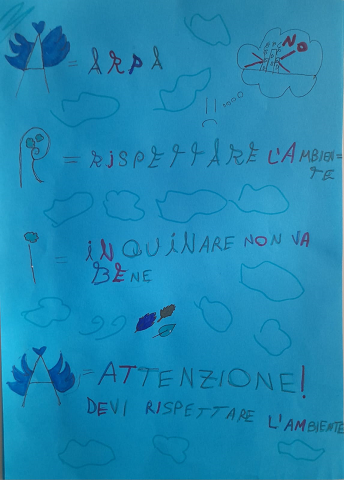 NO
A = ARPA
R = RISPETTARE L'AMBIEN=
TE
I = INQUINARE NON VA
BENE
A = ATTENZIONE!
DEVI RISPETTARE L'AMBIENTE